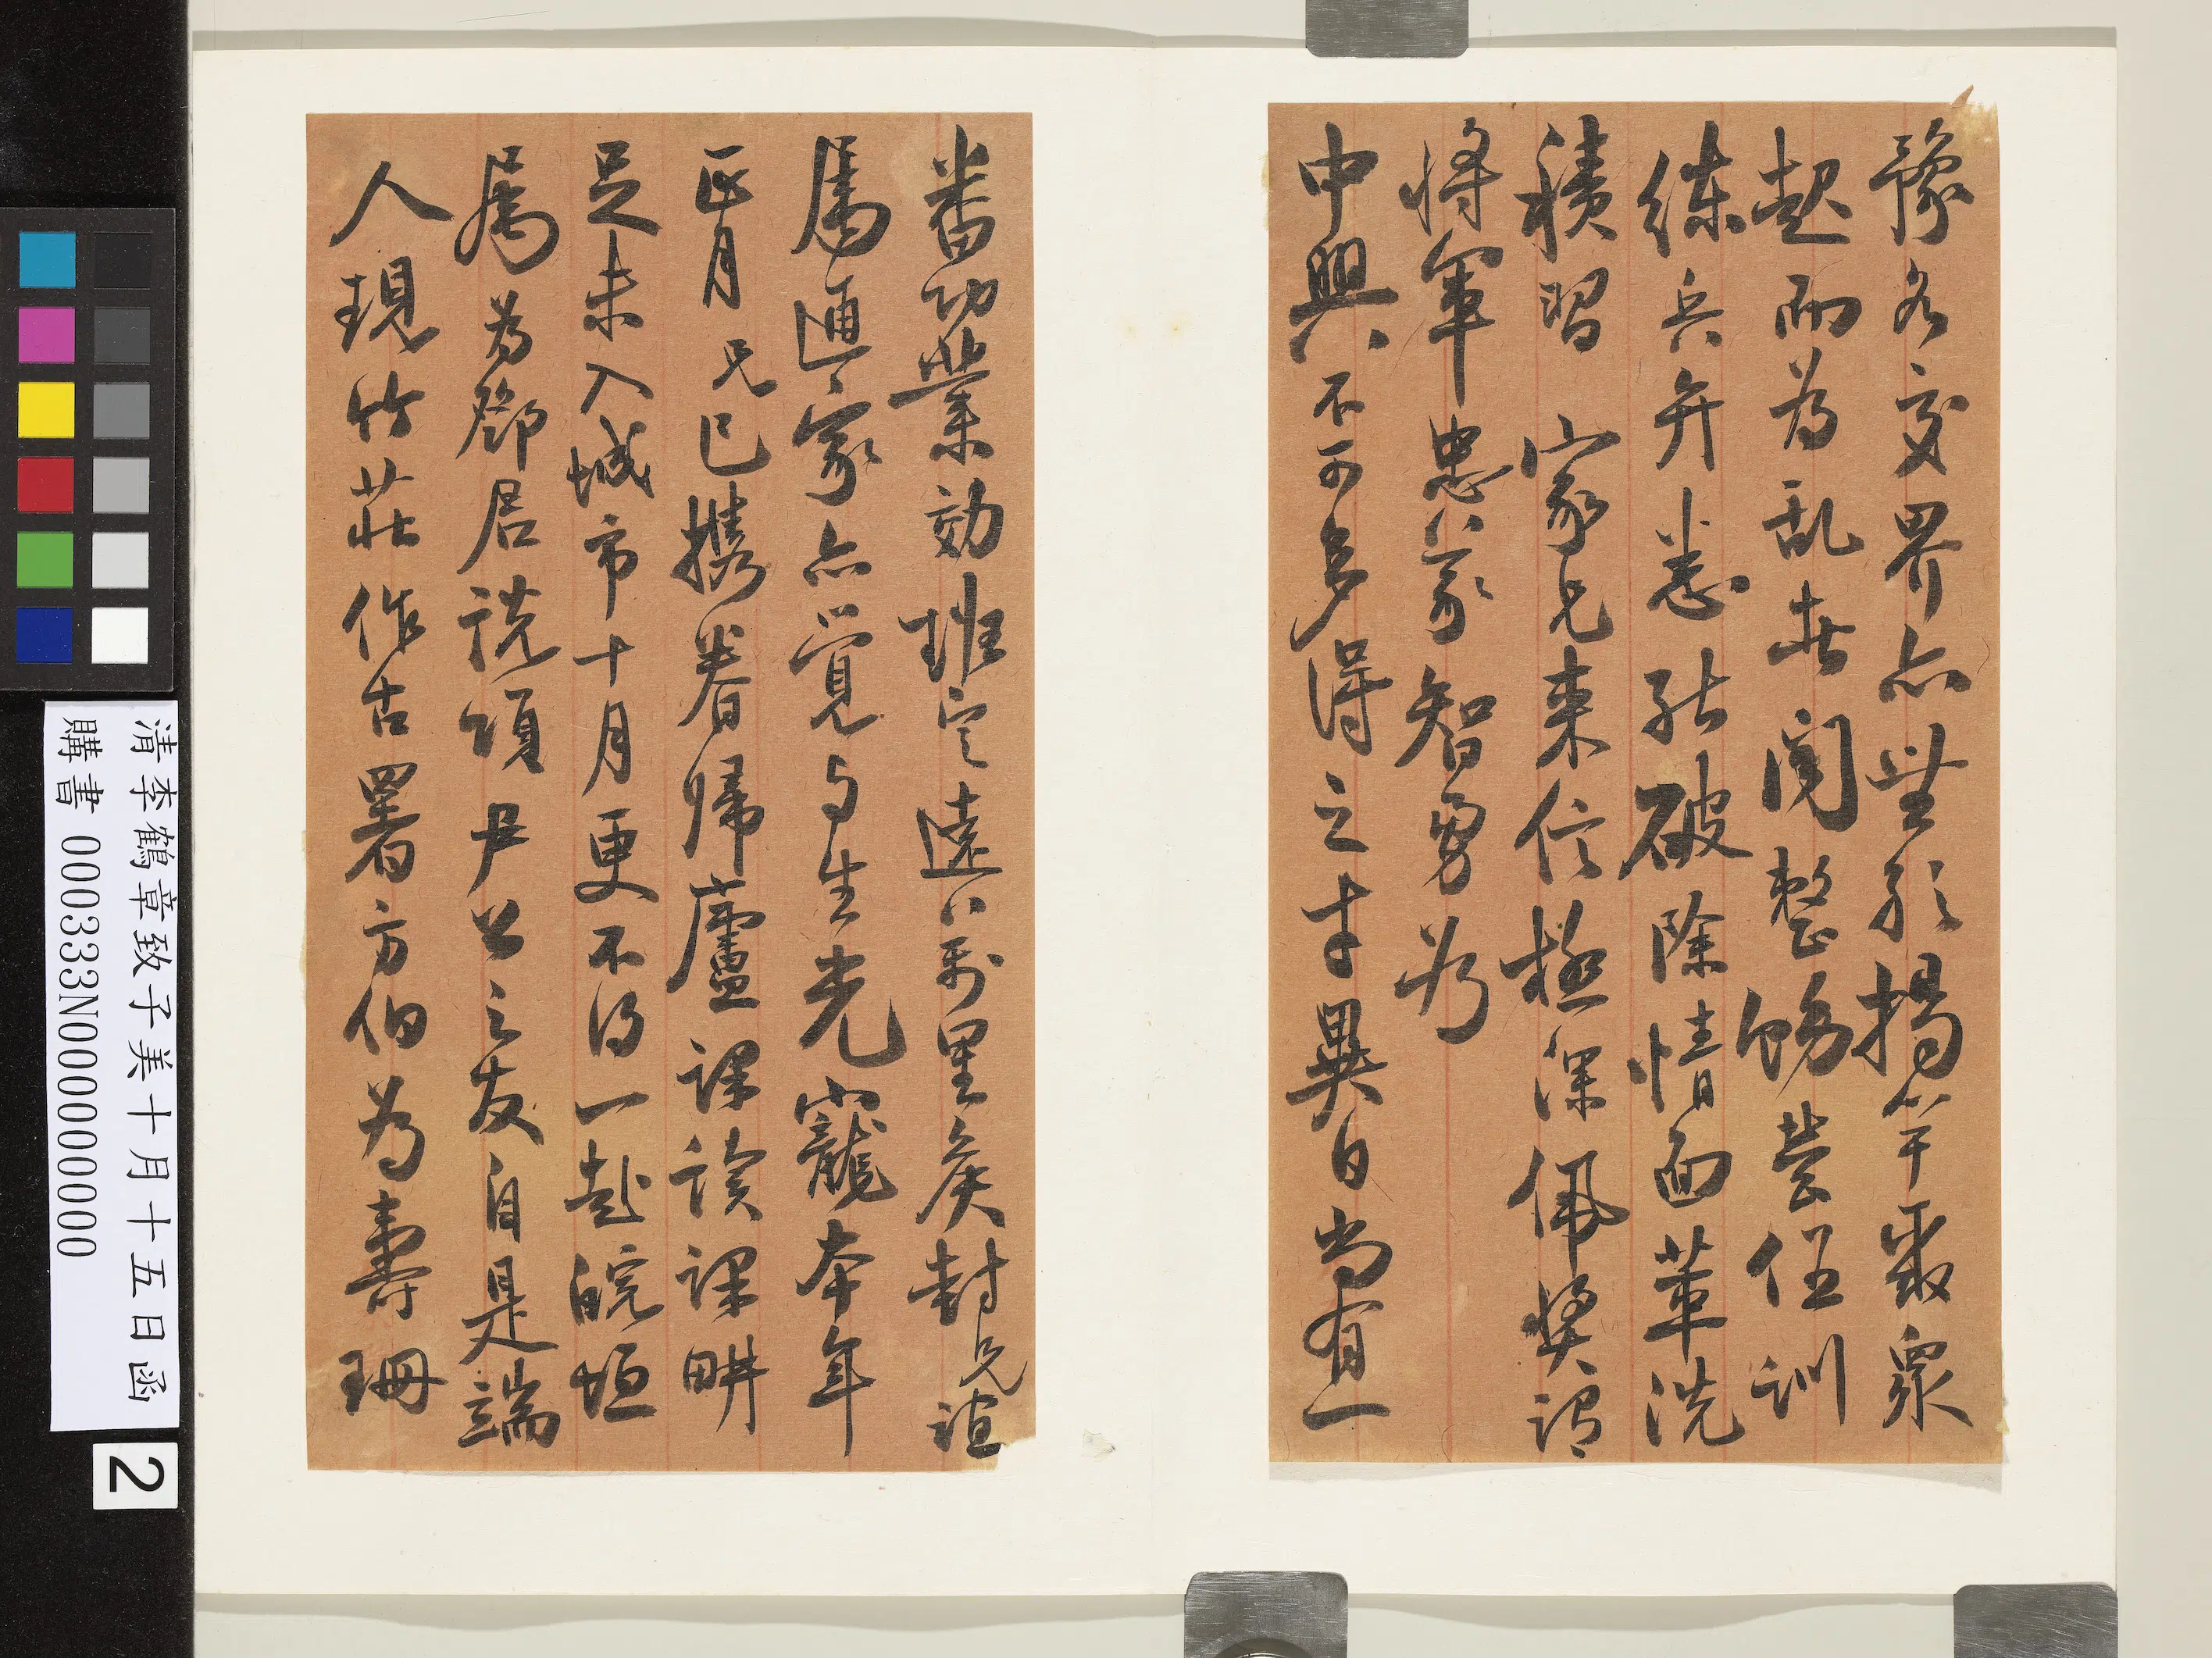 豫各交界亦無形揭竿聚眾
起而為乱者聞整飭營伍訓
練兵弁悉能破除情面革洗
積習 家兄來信極深佩獎謂
將軍忠義智勇為
中興不可多得之才異日當有一
番功業効班定遠以萬里矦封兄誼
屬通家亦覺与生光寵本年
正月兄已攜眷歸廬課讀課耕
足未入城市十月更不得一赴皖垣
属為鄧居說項尹公之友自是端
人現竹莊作古署方伯為壽珊
清李鶴章致子美十月十五日函
購書 000333N000000000
2